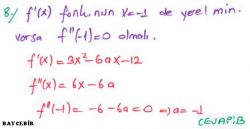 8-) f'(x) fonk.nun x=-1 de yerel min.
varsa f''(-1)=0 olmalı.
f'(x) = 3x²-6ax-12
f''(x) = 6x-6a
f''(-1) = -6-6a=0 ⇒ a=-1
CEVAP:B
BAYCEBİR